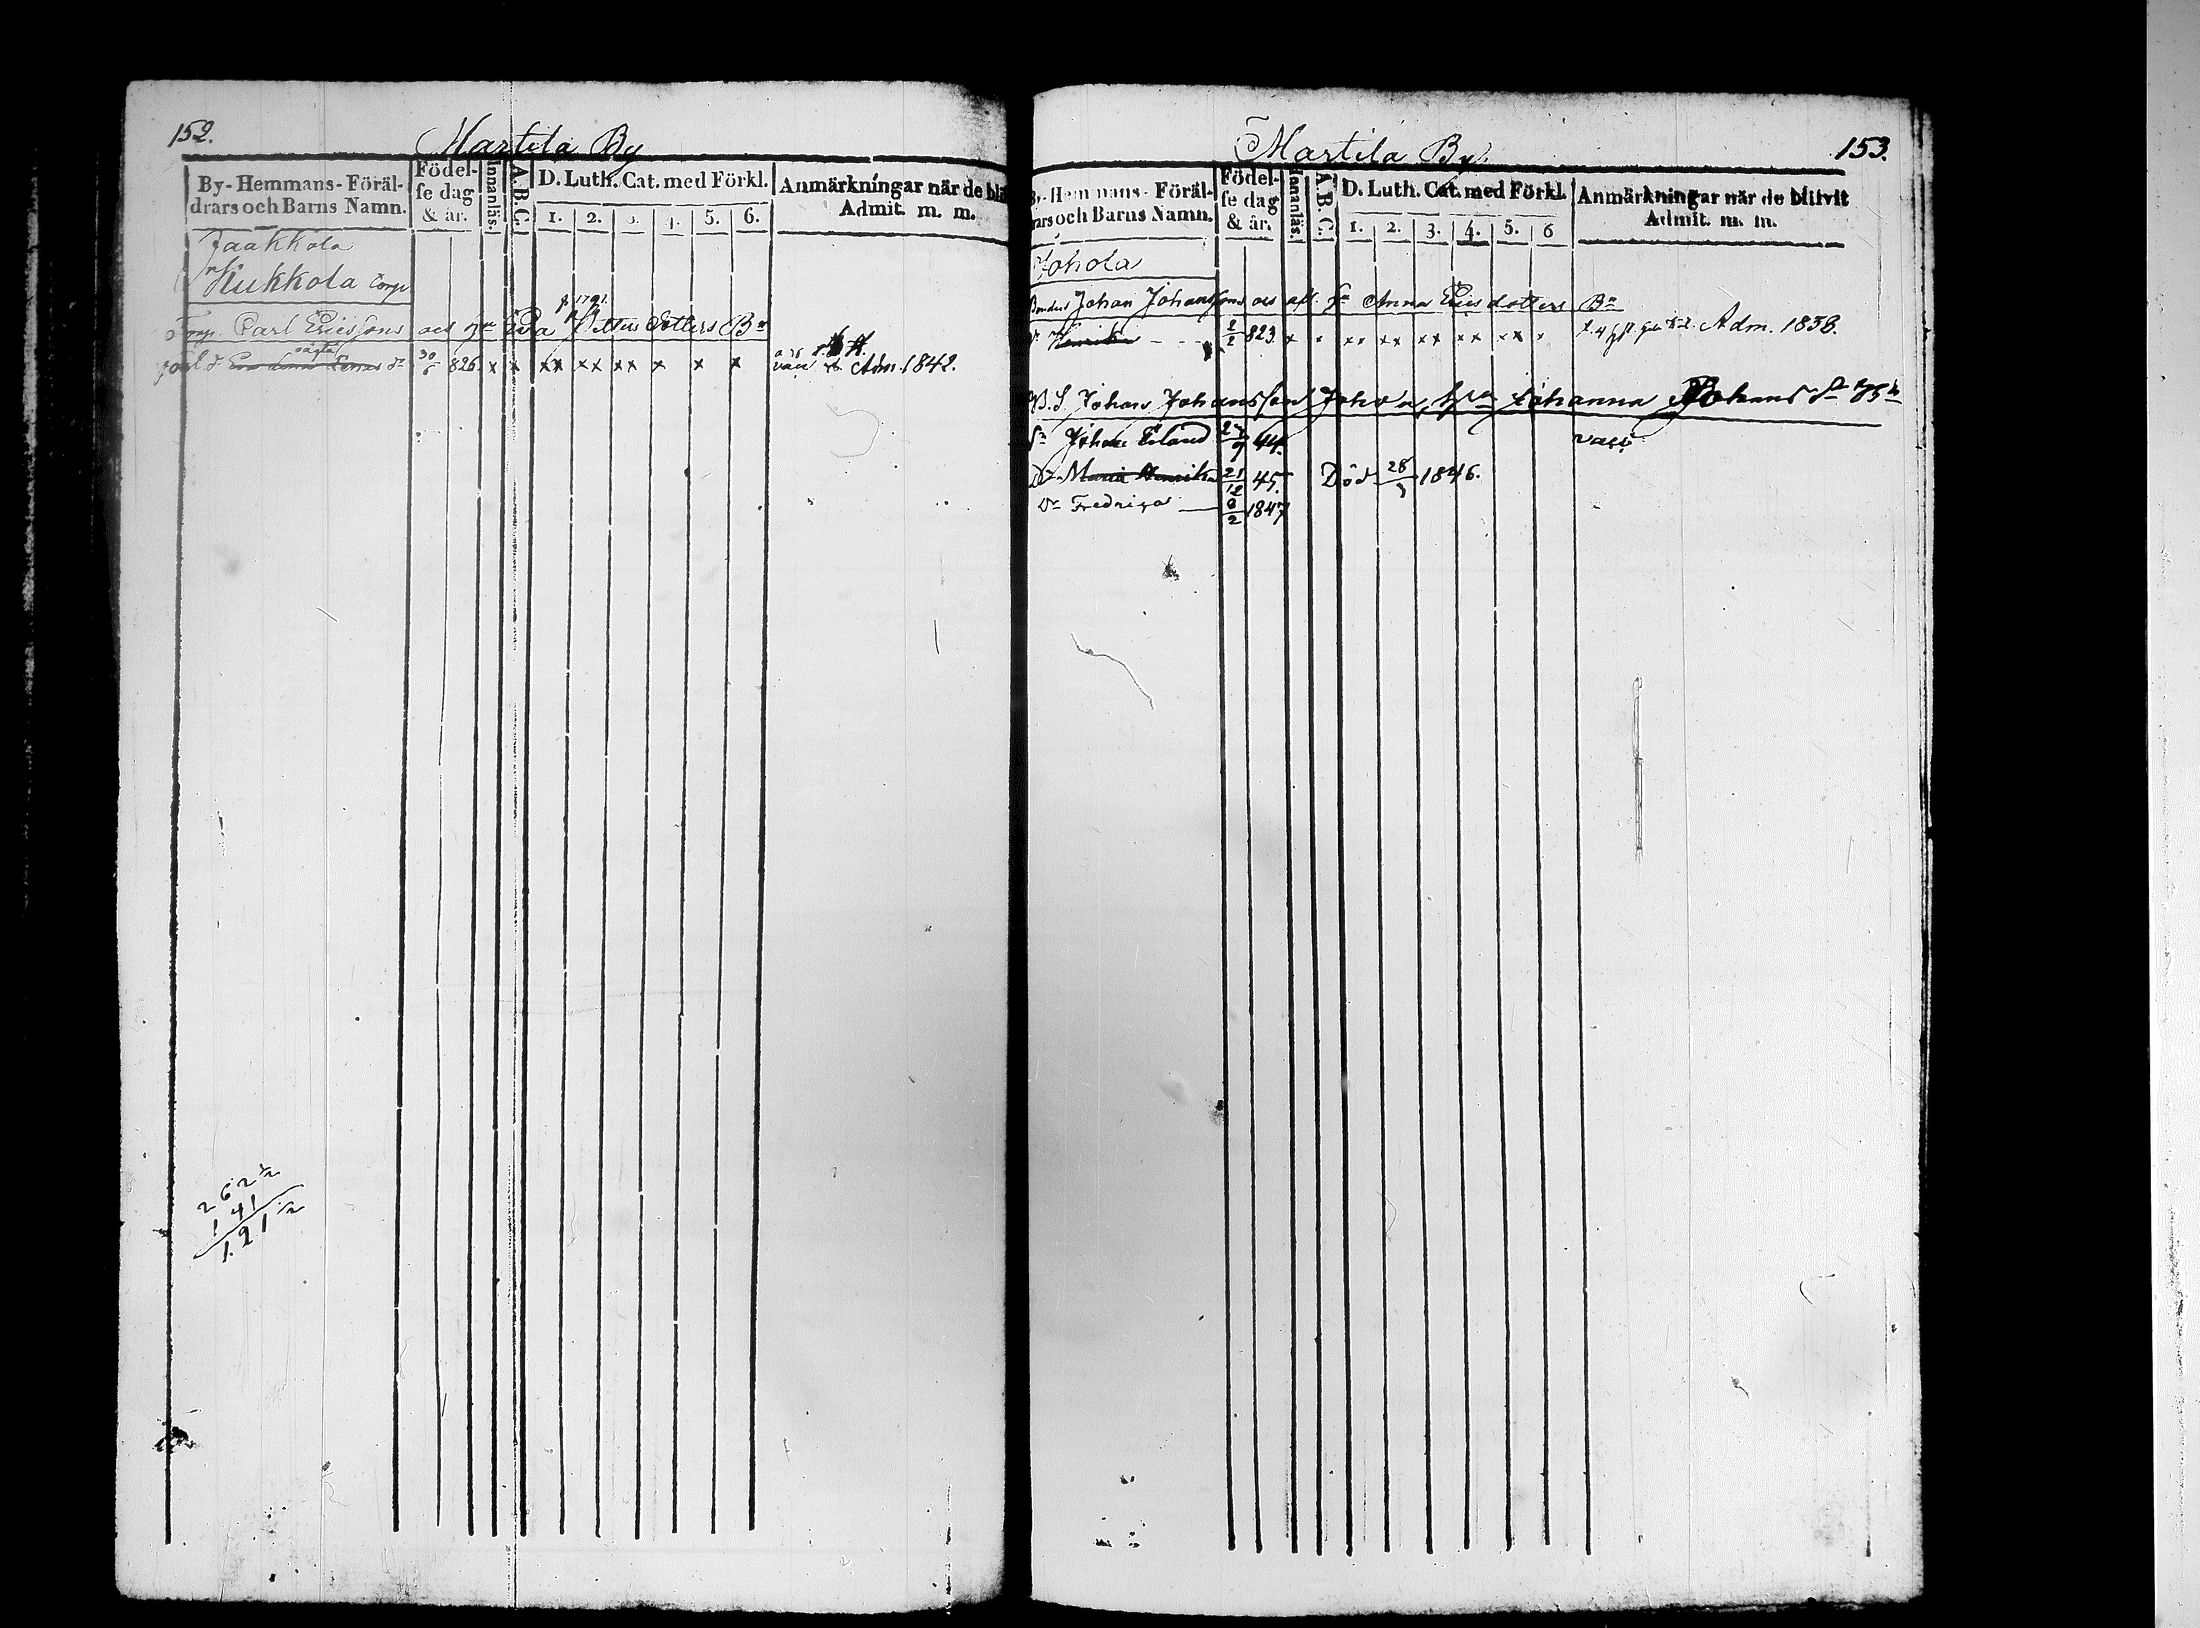 152.
Martila By
By- Hemmans- Föräl-
drars och Barns Namn.
Födel-
se dag
& år.
Innanläs.
A.B.C.
D. Luth. Cat. med Förkl.
1. 2. 3. 4. 5. 6.
Anmärkningar när de bli
Admit. m. m.
Jaakkola
Hukkola Torp
f. 1791.
Torp. Carl Ericssons och hu Eva Petters dotters Bn
30/6 826. x x xx xx xx x x x
vac. Adm. 1842.
262 1/2
141
121 1/2
Martila By.
153.
By- Hemmans- Föräl-
rars och Barns Namn.
Födel-
se dag
& år.
Innanläs.
A.B.C.
D. Luth. Cat. med Förkl.
1. 2. 3. 4. 5. 6
Anmärkningar när de blifvit
Admit. m. m.
Johola
Bonden Johan Johanssons och afl. hu Anna Erics dotters Bn
Dr Henrika 2/2 823. x x xx xx xx xx xx x Adm. 1838.
B.S. Johan Johansson Johola, hu Johanna Johans dr Bn
Sn Johan Erland 27/9 44. vacc.
Dr Maria Henrika 21/12 45. Död 28/3 1846.
Dr Fredrica 6/2 1847